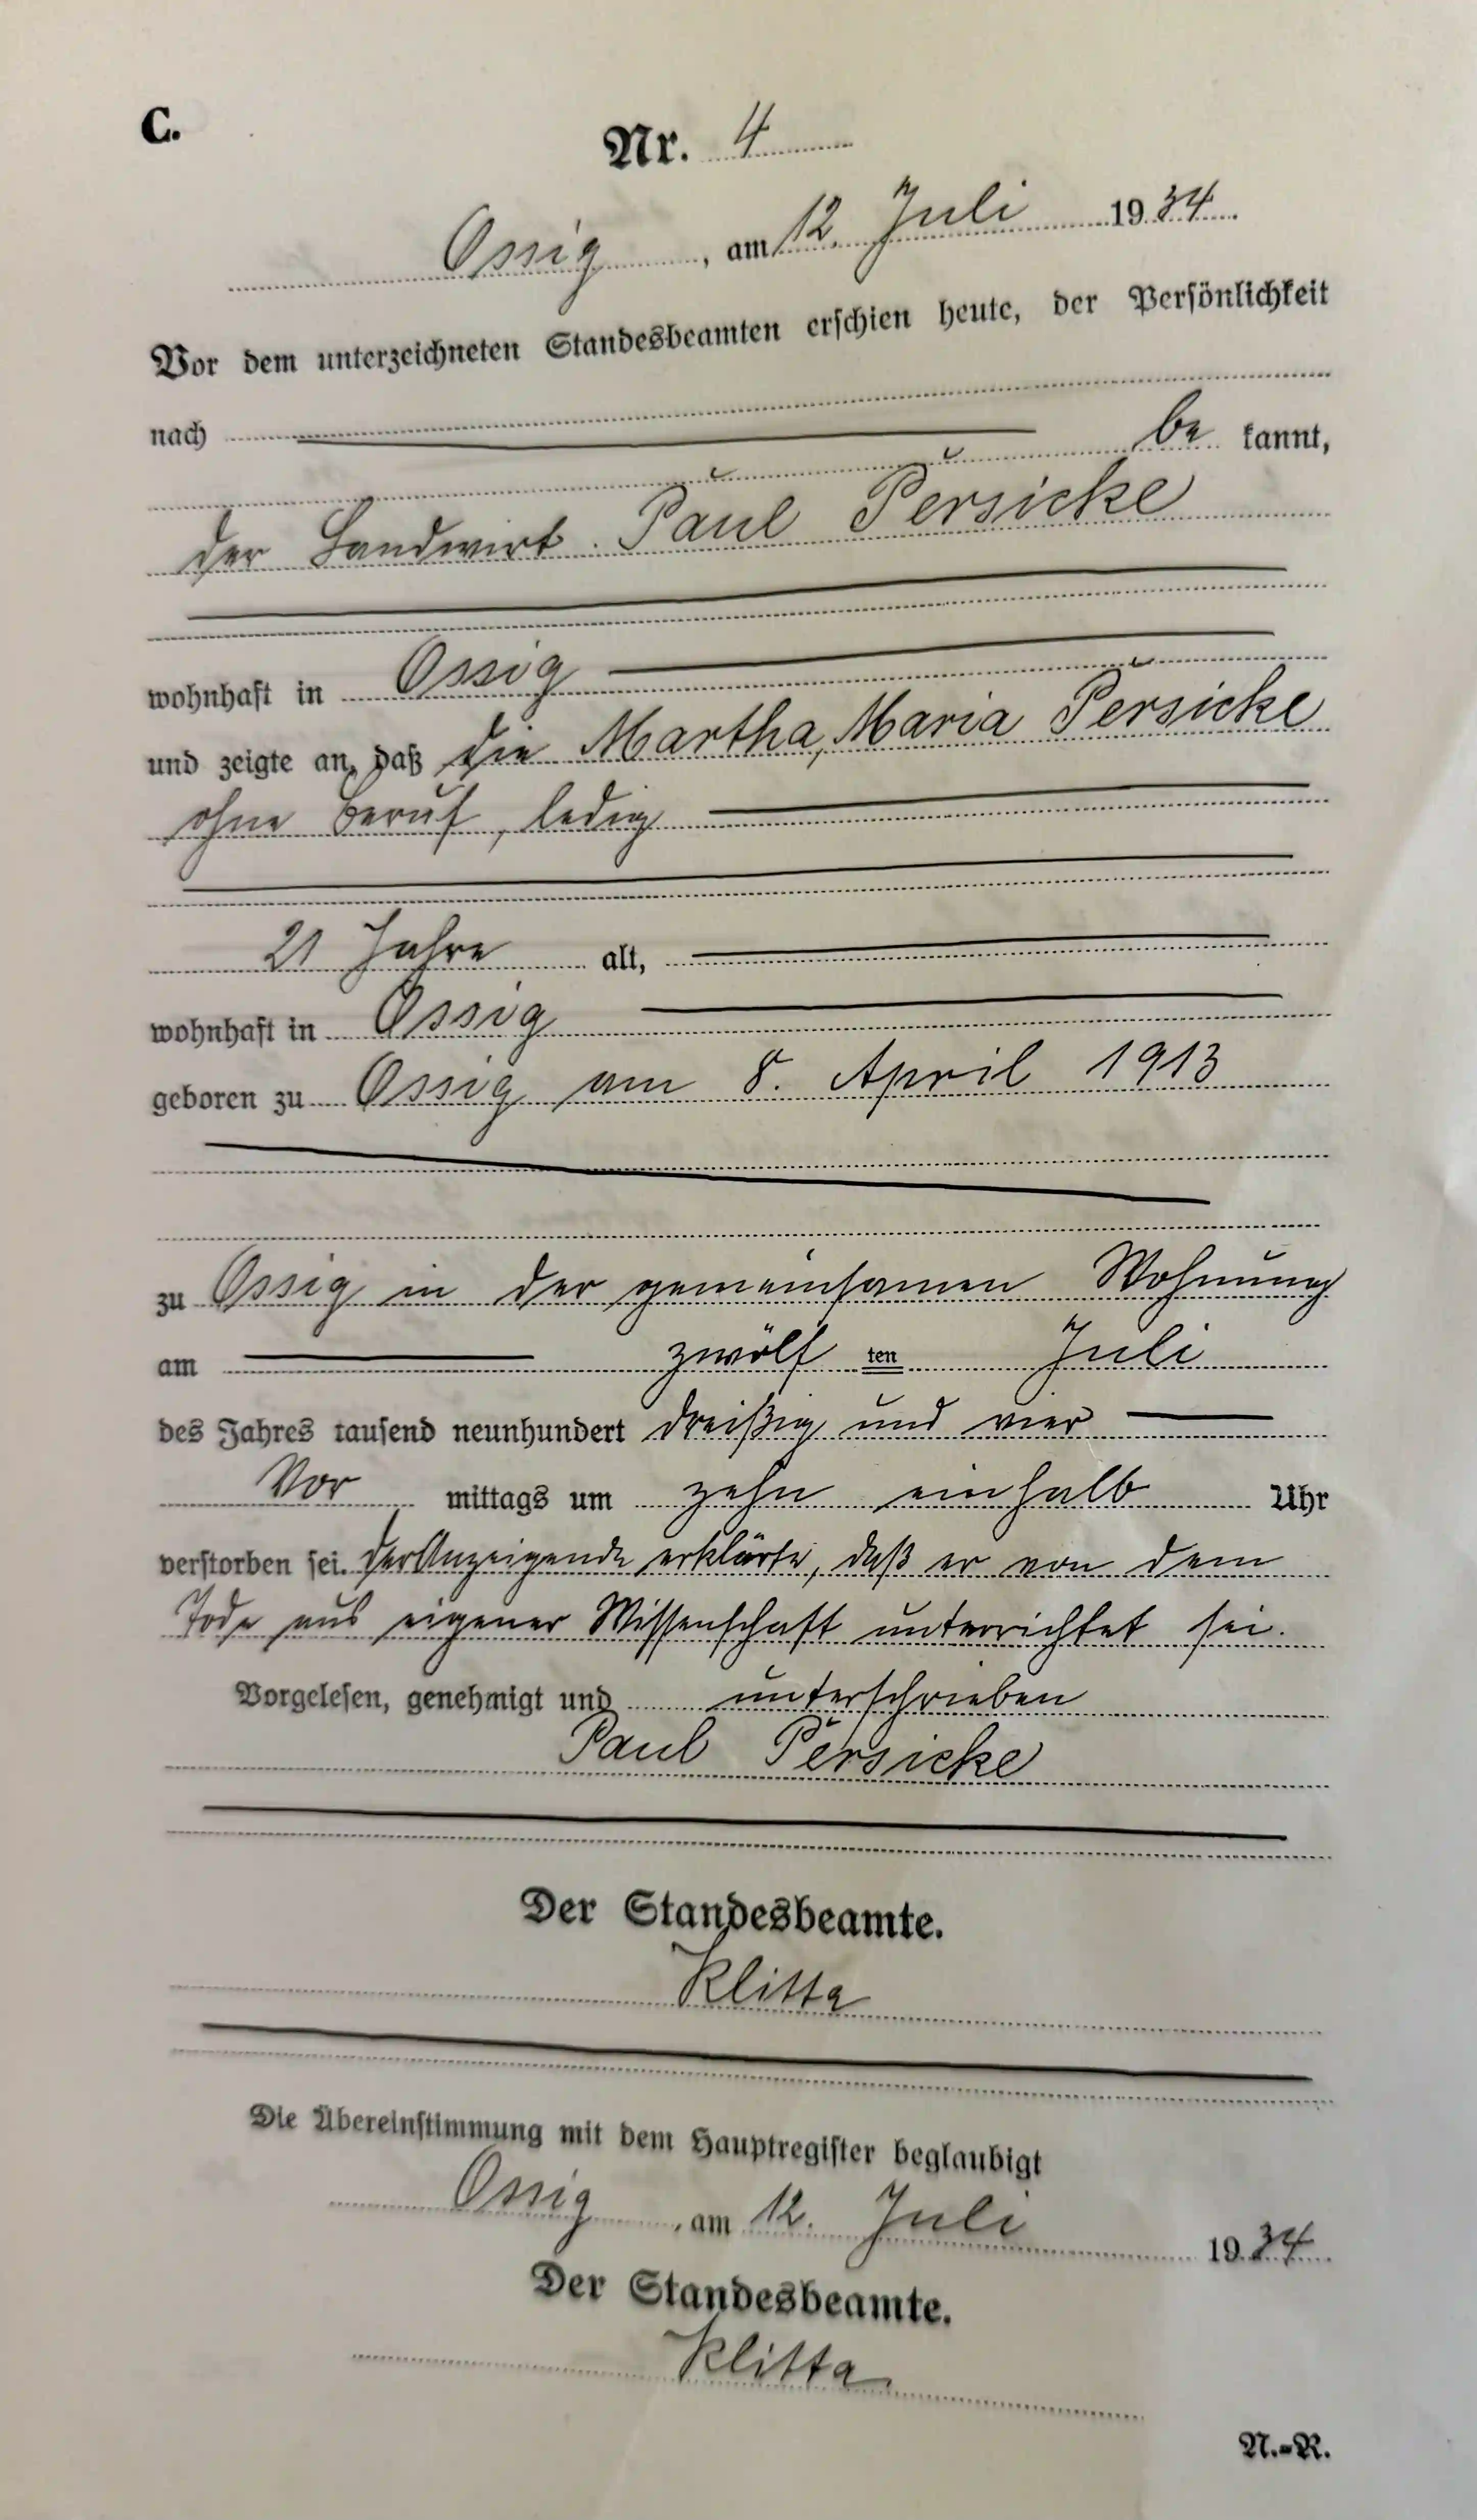 C.
Nr. 4
Ossig, am 12. Juli 1934.
Vor dem unterzeichneten Standesbeamten erschien heute, der Persönlichkeit
nach be kannt,
der Landwirt Paul Persicke
wohnhaft in Ossig
und zeigte an, daß die Martha, Maria Persicke
ohne Beruf, ledig
21 Jahre alt,
wohnhaft in Ossig
geboren zu Ossig am 8. April 1913
zu Ossig in der gemeinsamen Wohnung
am zwölf ten Juli
des Jahres tausend neunhundert dreißig und vier
Vor mittags um zehn einhalb Uhr
verstorben sei. Der Anzeigende erklärte, daß er von dem
Tode aus eigener Wissenschaft unterrichtet sei.
Vorgelesen, genehmigt und unterschrieben
Paul Persicke
Der Standesbeamte.
Klitta
Die Übereinstimmung mit dem Hauptregister beglaubigt
Ossig, am 12. Juli 1934.
Der Standesbeamte.
Klitta
N.-R.